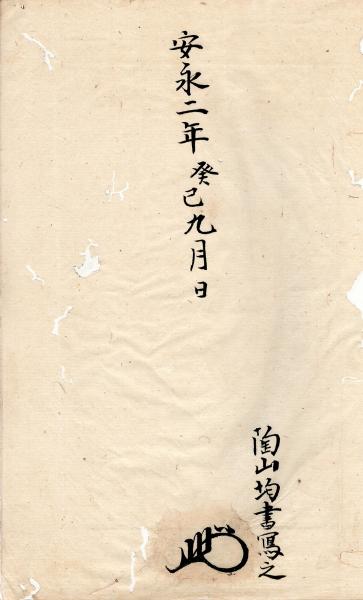 安永二年癸巳九月日
陶山均書寫之